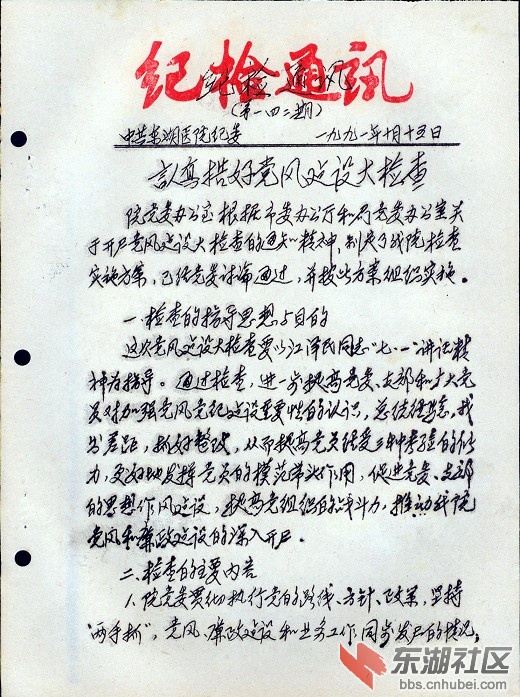 纪检通讯
纪检通讯
(第一四二期)
中共东湖医院纪委 一九九一年十月十五日
认真搞好党风建设大检查
院党委办公室根据市委办公厅和局党委办公室关
于开尸党风建设大检查的通知精神,制定了我院检查
实施方案,已经党委讨论通过,并按此方案组织实施。
一、检查的指导思想与目的
这次党风建设大检查要以江泽民同志"七·一"讲话精
神为指导。通过检查,进一步提高党委、支部和广大党
员对加强党风党纪建设重要性的认识,总结经验,找
出差距,抓好整改,从而提高党员经受各种考验的能
力,更好地发挥党员的模范带头作用,促进党委、支部
的思想作风建设,提高党组织的战斗力,推动我院
党风和廉政建设的深入开尸。
二、检查的主要内容
1.院党委贯彻执行党的路线、方针、政策,坚持
"两手抓",党风、廉政建设和业务工作同步发尸的情况;
东湖社区
bbs.cnhubei.com